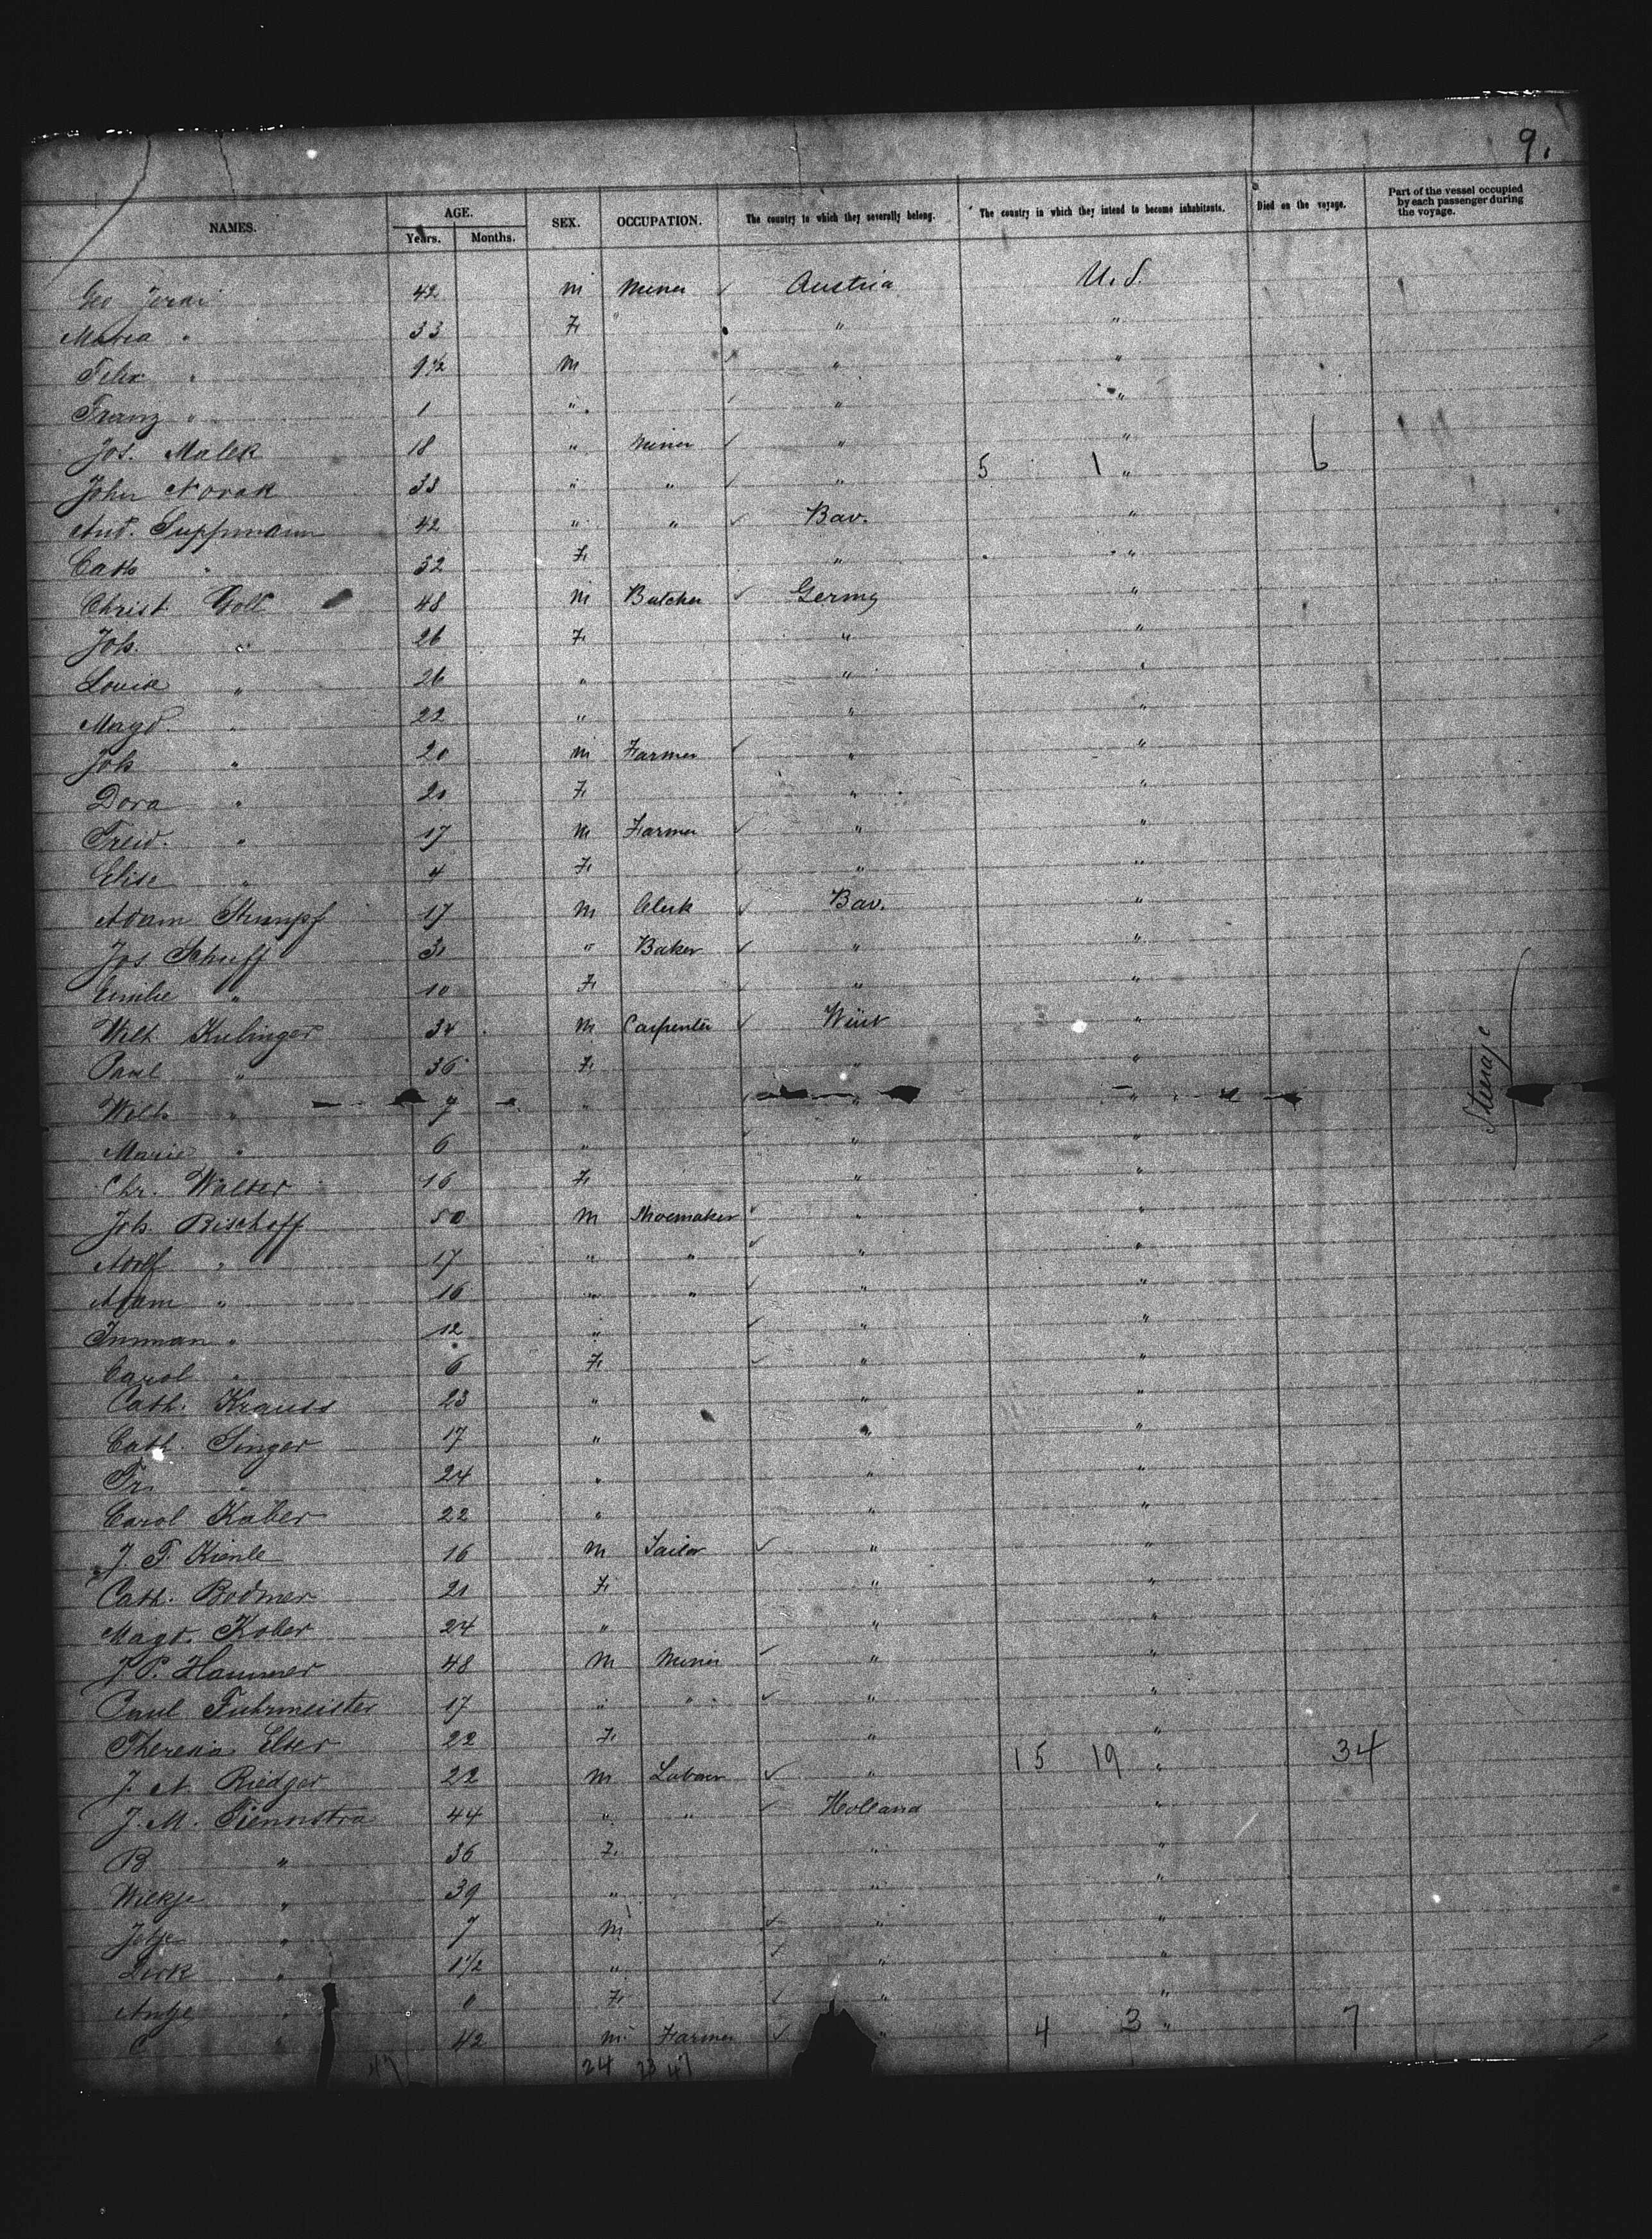 9.
NAMES. AGE. Years. Months. SEX. OCCUPATION. The country to which they severally belong. The country in which they intend to become inhabitants. Died on the voyage. Part of the vessel occupied by each passenger during the voyage.
Geo 42 m Miner ✓ Austria U.S.
Maria " 33 F " " "
Felix " 9 1/2 m " "
Franz " 1 " " "
Jos. Malek 18 " Miner ✓ " "
5 1 6
John Novak 33 " " ✓ " "
And. Suppmann 42 " " ✓ Bav. "
Cath " 32 F " "
Christ Goll 48 m Butcher ✓ Germy "
Joh. " 26 F " "
Louise " 26 " " "
Magd. " 22 " " "
Joh " 20 m Farmer ✓ " "
Dora " 20 F " "
Fried. " 17 m Farmer ✓ " "
Elise " 4 F " "
Adam Stumpf 17 m Clerk ✓ Bav. "
Jos. Schuff 31 " Baker ✓ " "
Emilie " 10 F " "
Wilh. Kulinger 34 m Carpenter ✓ Würt "
Paul " 36 F " "
Wilh " 7 " " "
Steerage
Marie " 6 " " "
Chr. Walter 16 F " "
Joh. Bischoff 50 m Shoemaker ✓ " "
Adolf " 17 " " ✓ " "
Adam " 16 " " ✓ " "
" 12 " ✓ " "
Carol " 6 F ✓ " "
Cath. Krauss 23 " " "
Cath. Singer 17 " " "
Fr. " 24 " " "
Carol Kaber 22 " " "
J. F. Kienle 16 m Tailor ✓ " "
Cath. Bodmer 21 F " "
Magd. Kober 24 " " "
J. P. Hammer 48 m Miner ✓ " "
Paul Fuhrmeister 17 " " ✓ " "
Theresia Elser 22 F " "
15 19 34
J. A. Riedger 22 m Labour ✓ " "
J. M. Tiennstra 44 " " ✓ Holland "
B " 36 F " "
Wilkje " 39 " " "
Jetje " 7 m ✓ " "
Dirk " 1 1/2 " ✓ " "
Antje " 0 F ✓ " "
C " 42 m Farmer ✓ " "
4 3 7
47 24 23 47